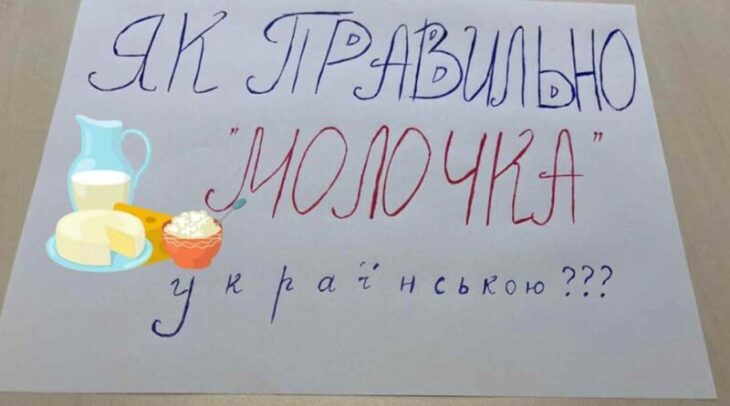 ЯК ПРАВИЛЬНО
"МОЛОЧКА"
українською???